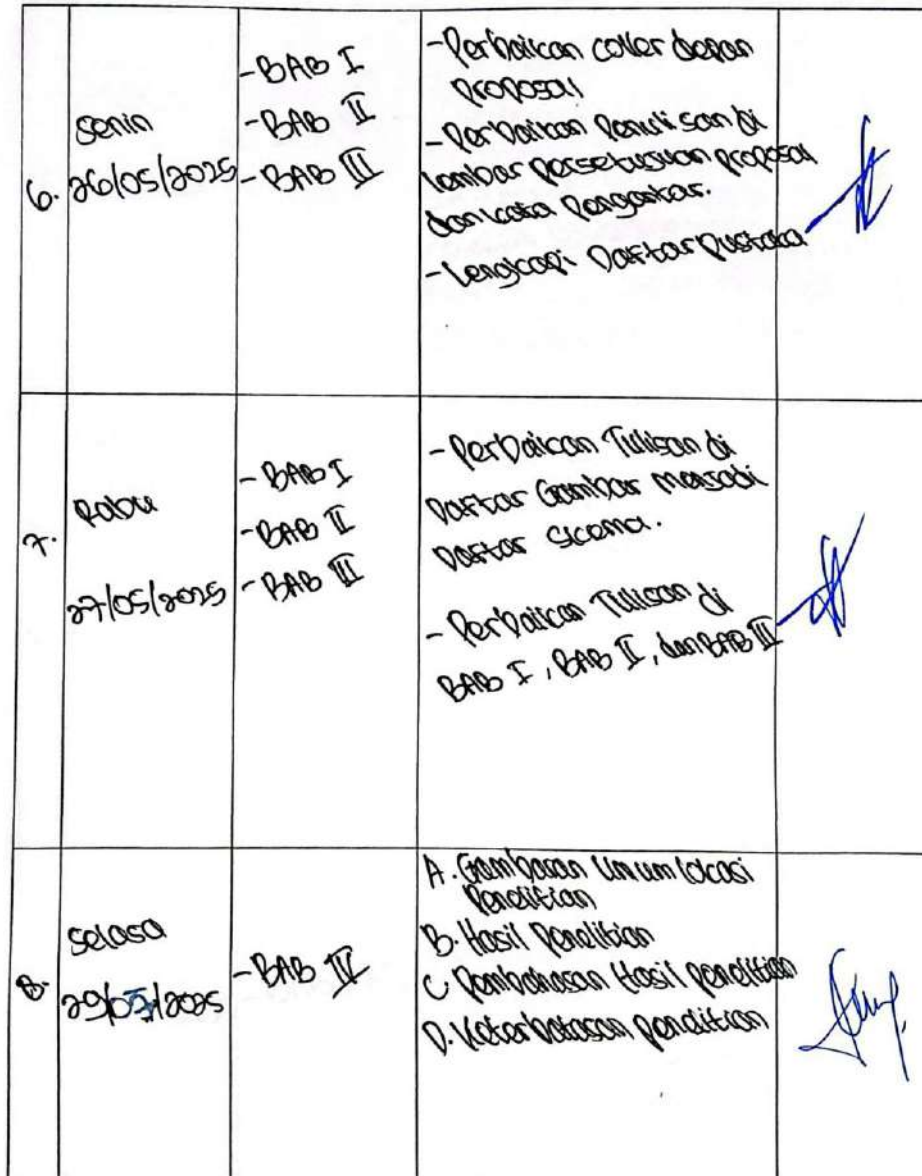 6.
Senin
26/05/2025
- BAB I
- BAB II
- BAB III
- Perbaikan cover depan
proposal
- Perbaikan Penulisan di
lembar persetujuan proposal
dan kata Pengantar.
- Lengkapi Daftar Pustaka
7.
Rabu
27/05/2025
- BAB I
- BAB II
- BAB III
- Perbaikan Tulisan di
Daftar Gambar menjadi
Daftar Skema.
- Perbaikan Tulisan di
BAB I, BAB II, dan BAB III
8.
Selasa
- BAB IV
A. Gambaran Umum lokasi
Penelitian
B. Hasil Penelitian
C. Pembahasan Hasil penelitian
D. Keterbatasan penelitian